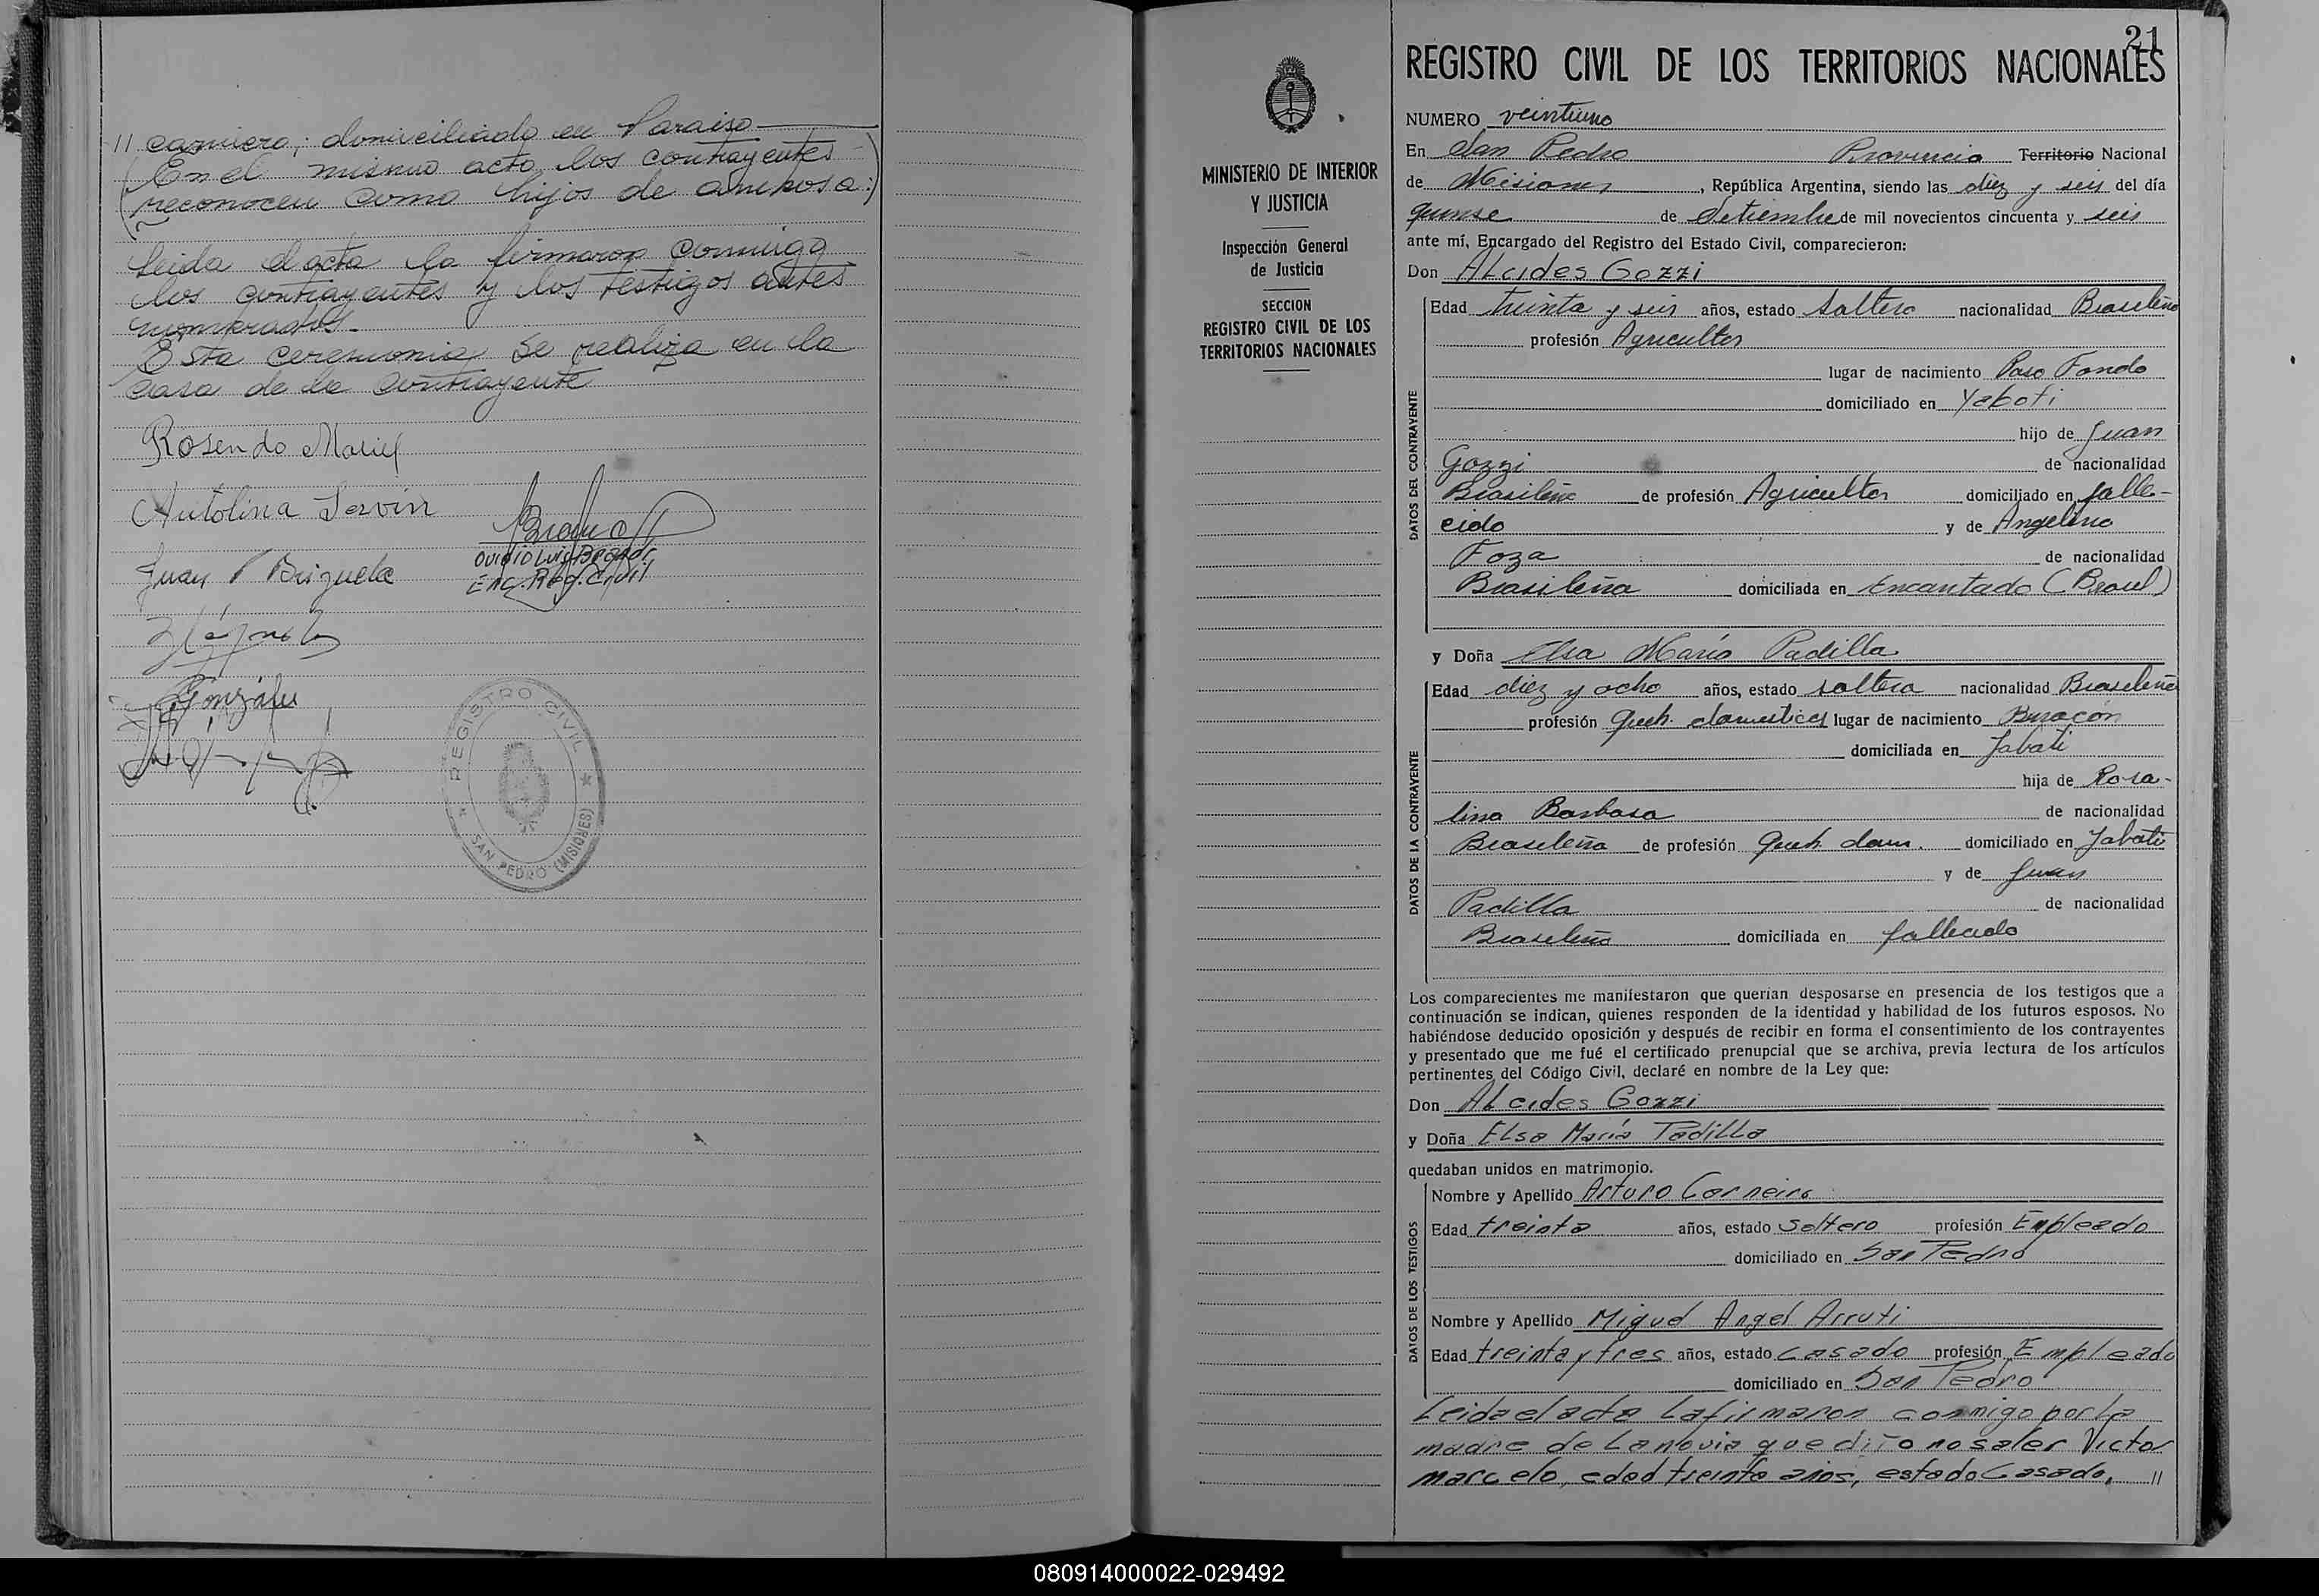 // carnicero; domiciliado en Paraiso
(En el mismo acto los contrayentes
reconocen como hijos de ambos a:)
Leida el acta la firmaron conmigo
los contrayentes y los testigos antes
nombrados.
Esta ceremonia se realiza en la
casa de la contrayente
Rosendo Mariel
Antolina Servín
Juan Brizuela
Ovidio Luis
Enc. Reg. Civil
González
REGISTRO CIVIL
SAN PEDRO (MISIONES)
21
REGISTRO CIVIL DE LOS TERRITORIOS NACIONALES
MINISTERIO DE INTERIOR
Y JUSTICIA
Inspección General
de Justicia
SECCION
REGISTRO CIVIL DE LOS
TERRITORIOS NACIONALES
NUMERO veintiuno
En San Pedro Provincia Territorio Nacional
de Misiones, República Argentina, siendo las diez y seis del día
quinse de Setiembre de mil novecientos cincuenta y seis
ante mí, Encargado del Registro del Estado Civil, comparecieron:
Don Alcides Gozzi
DATOS DEL CONTRAYENTE
Edad treinta y seis años, estado soltero nacionalidad Brasileño
profesión Agricultor
lugar de nacimiento Paso Fondo
domiciliado en Yaboti
hijo de Juan
Gozzi de nacionalidad
Brasileño de profesión Agricultor domiciliado en falle-
cido y de Angelina
Foza de nacionalidad
Brasileña domiciliada en Encantado (Brasil)
y Doña Elsa María Padilla
DATOS DE LA CONTRAYENTE
Edad diez y ocho años, estado soltera nacionalidad Brasileña
profesión Queh. domesticos lugar de nacimiento Buracón
domiciliada en Jabati
hija de Rosa-
lina Barbosa de nacionalidad
Brasileña de profesión Queh. dom. domiciliado en Jaboti
y de Juan
Padilla de nacionalidad
Brasileño domiciliada en fallecido
Los comparecientes me manifestaron que querían desposarse en presencia de los testigos que a
continuación se indican, quienes responden de la identidad y habilidad de los futuros esposos. No
habiéndose deducido oposición y después de recibir en forma el consentimiento de los contrayentes
y presentado que me fué el certificado prenupcial que se archiva, previa lectura de los artículos
pertinentes del Código Civil, declaré en nombre de la Ley que:
Don Alcides Gozzi
y Doña Elsa María Padilla
quedaban unidos en matrimonio.
DATOS DE LOS TESTIGOS
Nombre y Apellido Arturo Carneiro
Edad treinta años, estado Soltero profesión Empleado
domiciliado en San Pedro
Nombre y Apellido Miguel Angel Arruti
Edad treinta y tres años, estado casado profesión Empleado
domiciliado en San Pedro
Leida el acta La firmaron conmigo por la
madre de La novia que dijo no saber Victor
Marcelo, edad treinta años, estado Casado, //
080914000022-029492